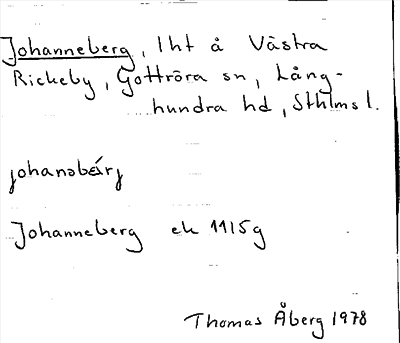 Johanneberg, lht å Västra
Rickeby, Gottröra sn, Lång-
hundra hd, Sthlms l.
johanəbærj
Johanneberg ek 11I5g
Thomas Åberg 1978